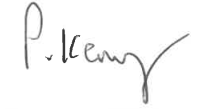 P. Kenny